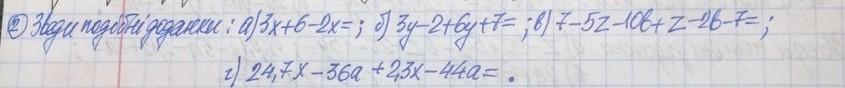 ② Зведи подібні доданки: а) 3x+6-2x=; б) 3y-2+6y+7=; в) 7-5z-10b+z-2b-7=;
г) 24,7x-36a+2,3x-44a=.